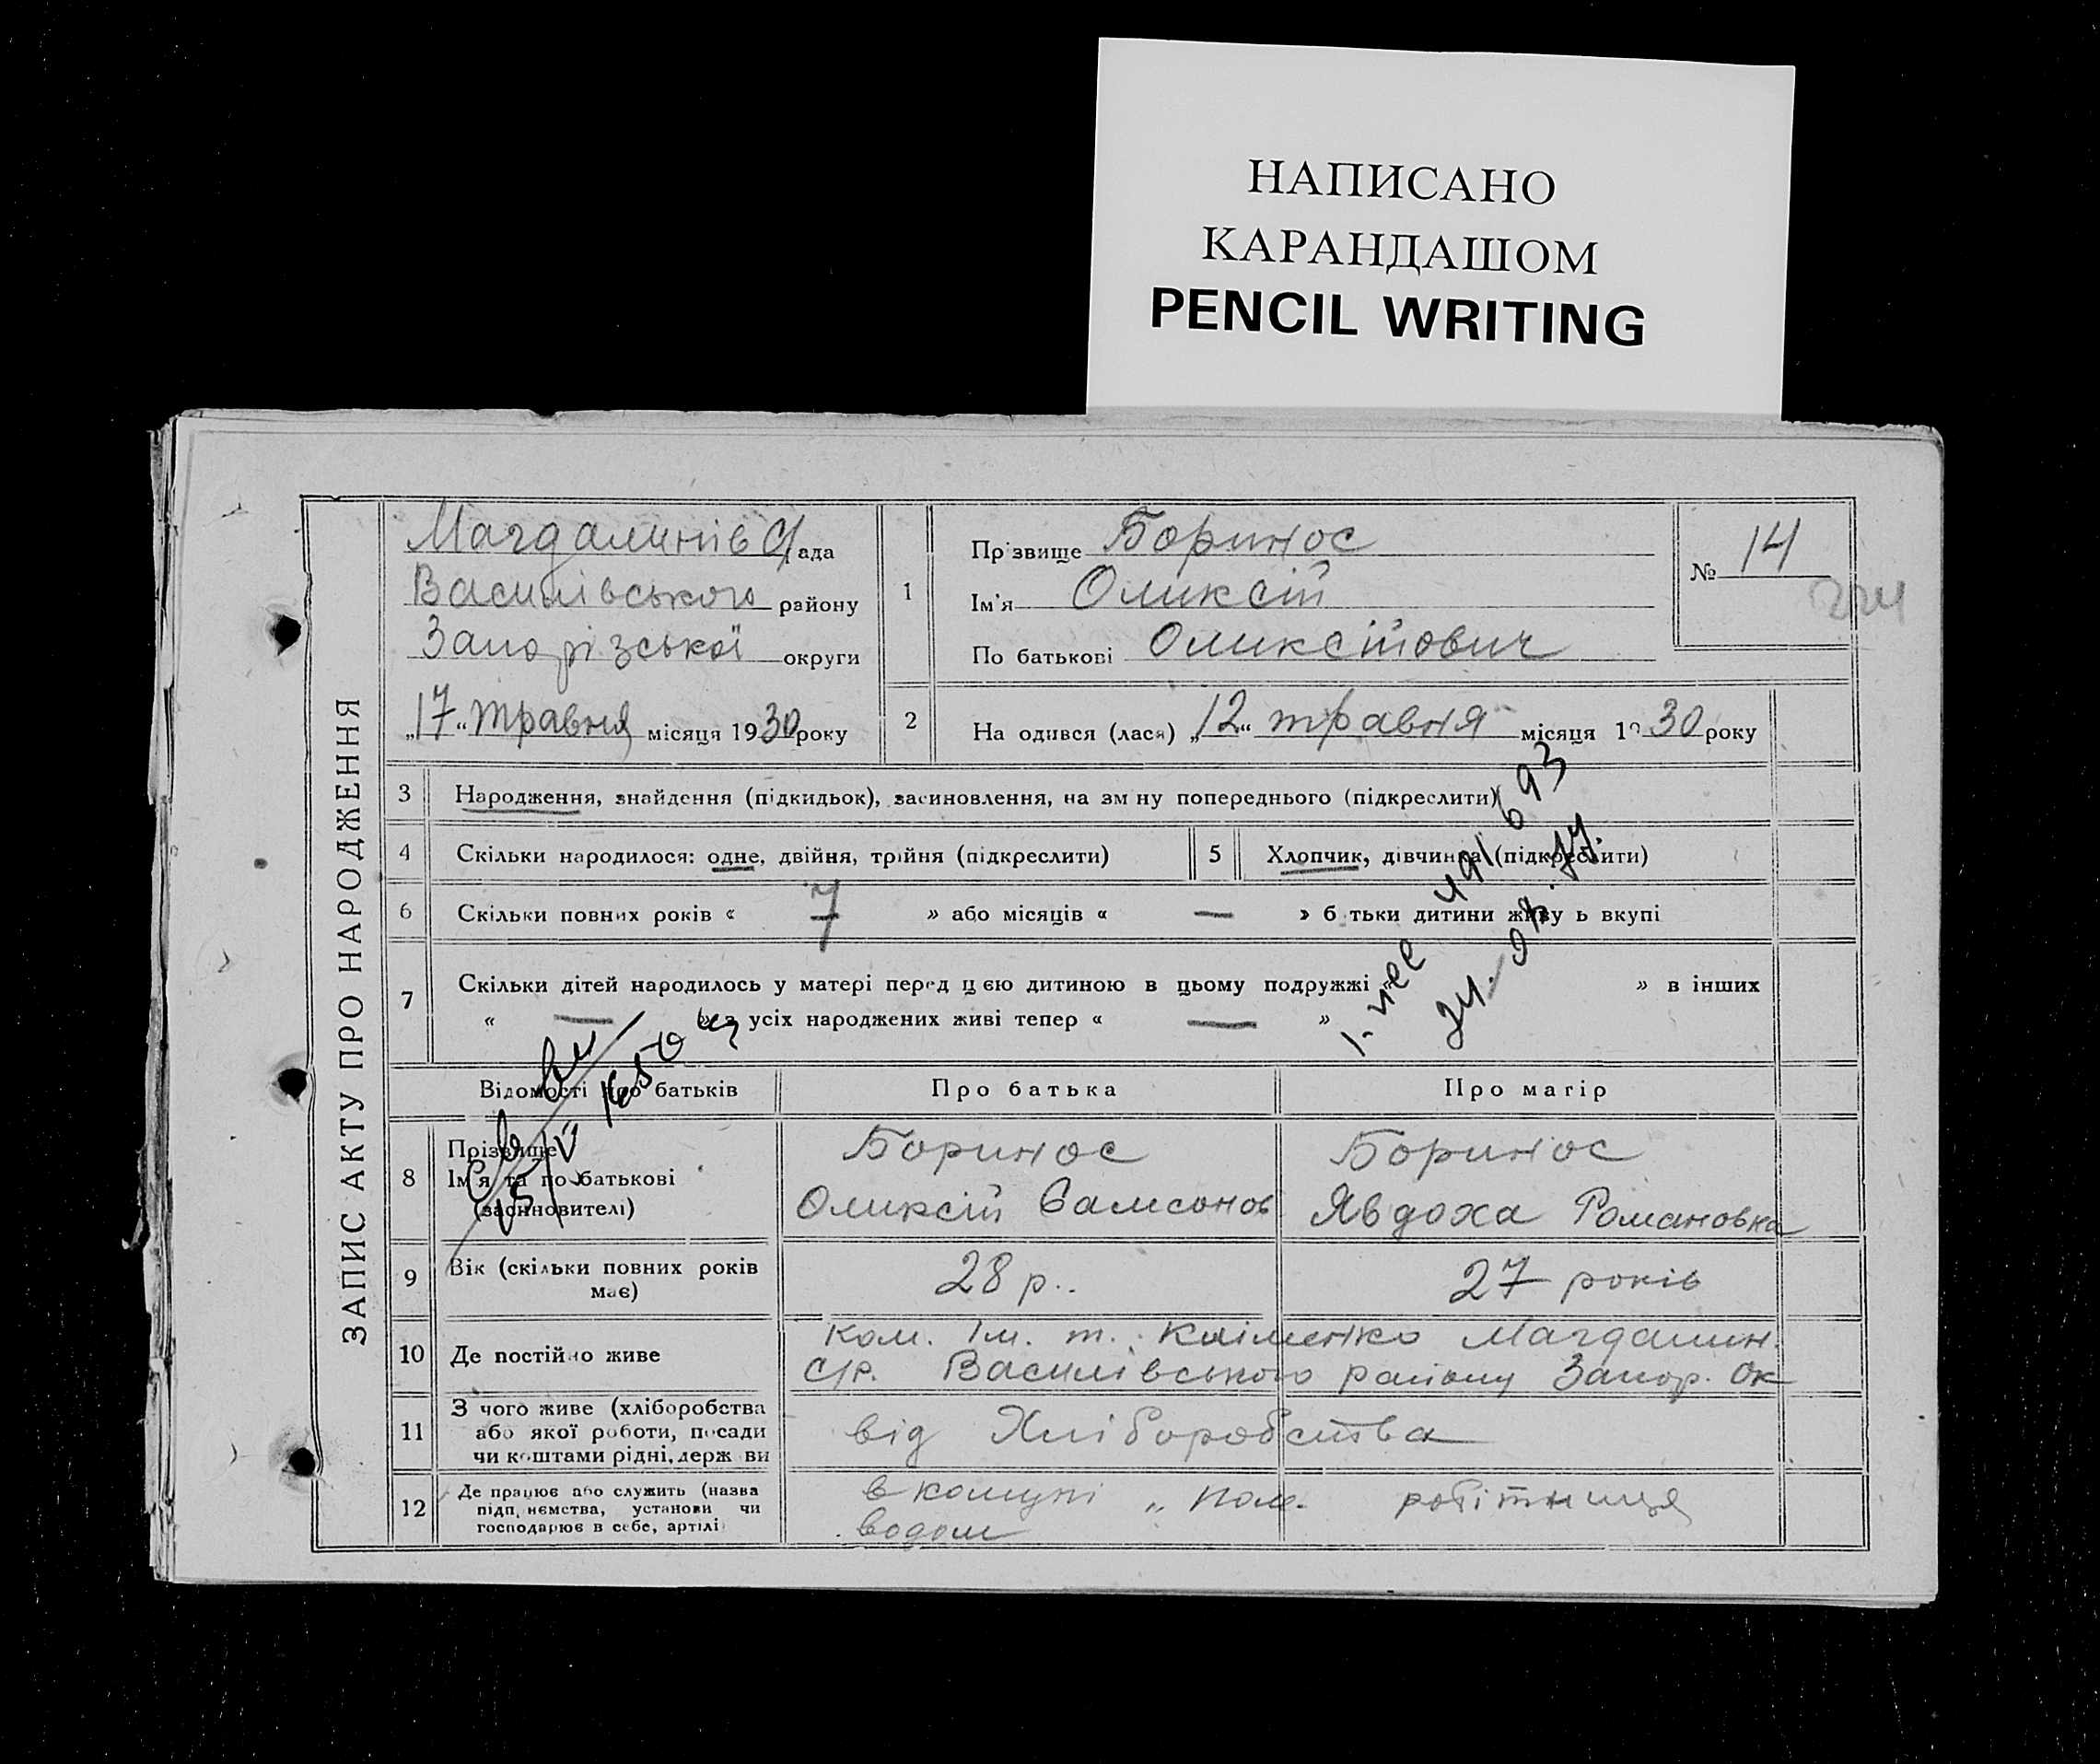 НАПИСАНО
КАРАНДАШОМ
PENCIL WRITING
ЗАПИС АКТУ ПРО НАРОДЖЕННЯ
Магдалинів С/ада
Василівського району
Запорізської округи
„17“ травня місяця 1930 року
1
Прізвище Боринос
Ім'я Оликсій
По батькові Оликсійович
№ 14
224
2
На одився (лася) „12“ травня місяця 1930 року
3 Народження, знайдення (підкидьок), засиновлення, на зм ну попереднього (підкреслити)
4 Скільки народилося: одне, двійня, трійня (підкреслити)
5 Хлопчик, дівчинка (підкреслити)
6 Скільки повних років « 7 » або місяців « — » б тьки дитини живу ь вкупі
7 Скільки дітей народилось у матері перед цією дитиною в цьому подружжі « » в інших
« — » з усіх народжених живі тепер « — »
491693
Відомості про батьків
Про батька
Про матір
8 Прізвище
Ім'я та по батькові
(засиновителі)
Боринос
Оликсій Самсонов
Боринос
Явдоха Романовка
9 Вік (скільки повних років
має)
28 р.
27 років
10 Де постійно живе
ком. Ім. т. Кліменко Магдалин.
С/Р. Василівського району Запор. Ок
11 З чого живе (хліборобства
або якої роботи, посади
чи коштами рідні, держ ви
від Хліборобства
12 Де працює або служить (назва
підп ємства, установи чи
господарює в себе, артілі
в комуні „ пол.
водом
робітниця